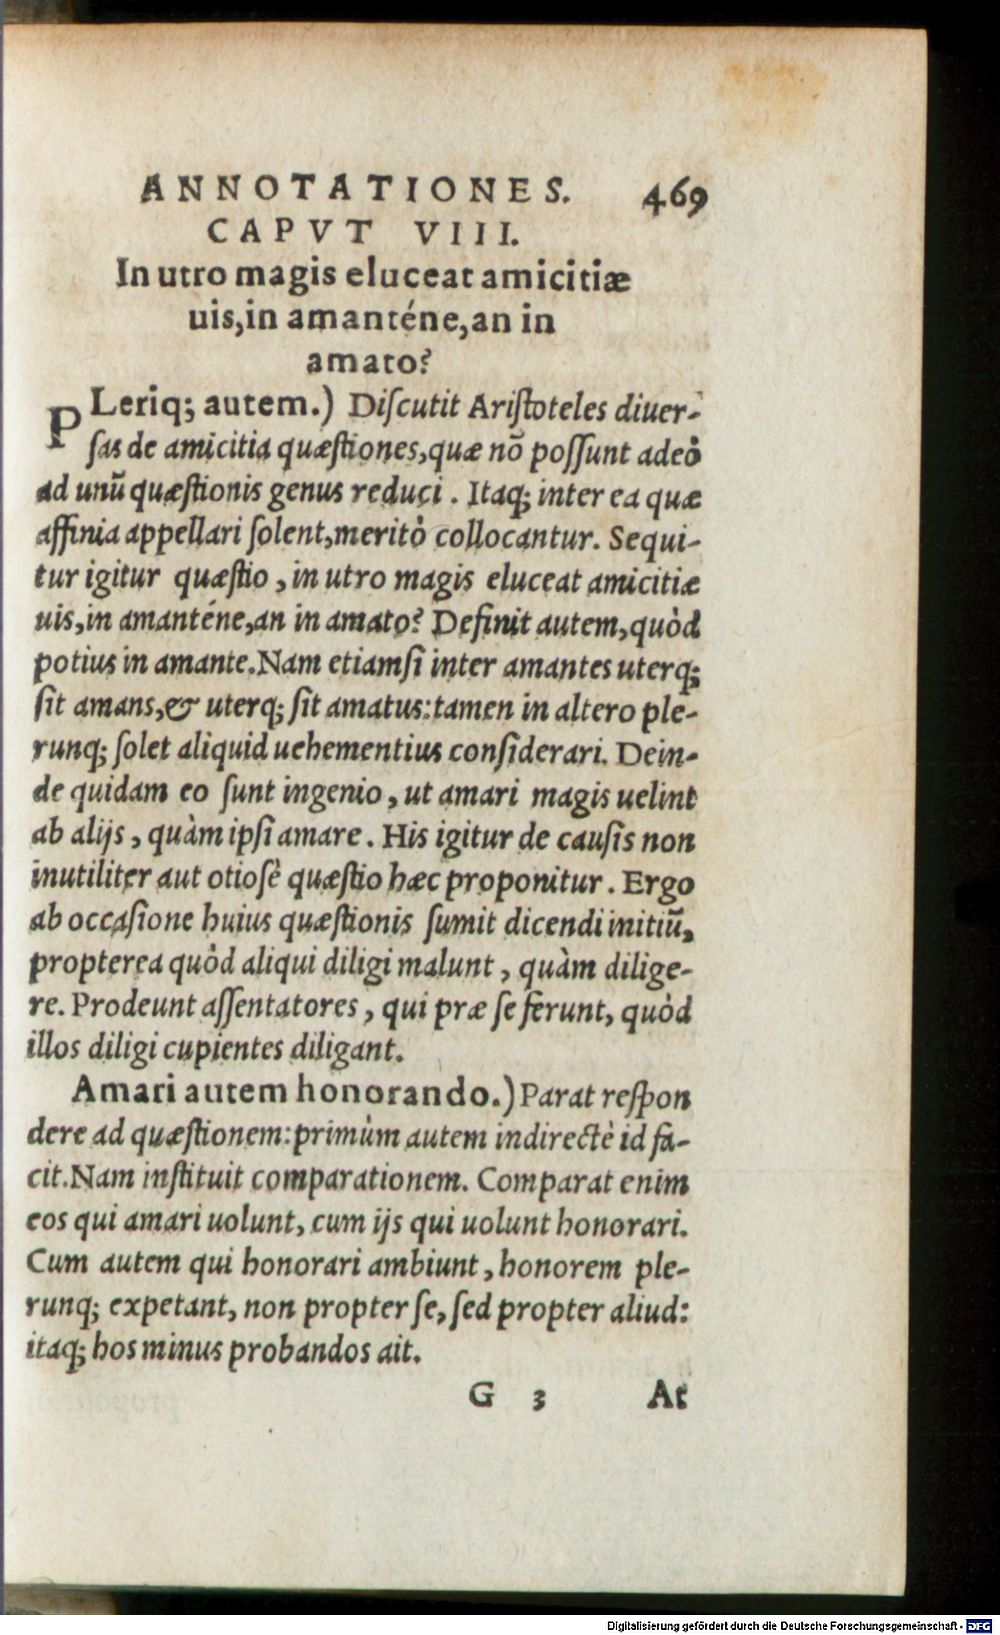 ANNOTATIONES. 469
CAPVT VIII.
In utro magis eluceat amicitiæ
uis,in amanténe,an in
amato?
PLeriq; autem.) Diſcutit Ariſtoteles diuer-
ſas de amicitia quæſtiones,quæ nõ poſſunt adeò
ad unũ quæſtionis genus reduci. Itaq; inter ea quæ
affinia appellari ſolent,meritò collocantur. Sequi-
tur igitur quæſtio, in utro magis eluceat amicitiæ
uis,in amanténe,an in amato? Definit autem,quòd
potius in amante.Nam etiamſi inter amantes uterq;
ſit amans,& uterq; ſit amatus:tamen in altero ple-
runq; ſolet aliquid uehementius conſiderari. Dein-
de quidam eo ſunt ingenio, ut amari magis uelint
ab alijs, quàm ipſi amare. His igitur de cauſis non
inutiliter aut otioſè quæſtio hæc proponitur. Ergo
ab occaſione huius quæſtionis ſumit dicendi initiũ,
propterea quòd aliqui diligi malunt, quàm dilige-
re. Prodeunt aſſentatores, qui præ ſe ferunt, quòd
illos diligi cupientes diligant.
Amari autem honorando.) Parat reſpon
dere ad quæſtionem:primùm autem indirectè id fa-
cit.Nam inſtituit comparationem. Comparat enim
eos qui amari uolunt, cum ijs qui uolunt honorari.
Cum autem qui honorari ambiunt, honorem ple-
runq; expetant, non propter ſe, ſed propter aliud:
itaq; hos minus probandos ait.
G 3 At
Digitalisierung gefördert durch die Deutsche Forschungsgemeinschaft - DFG